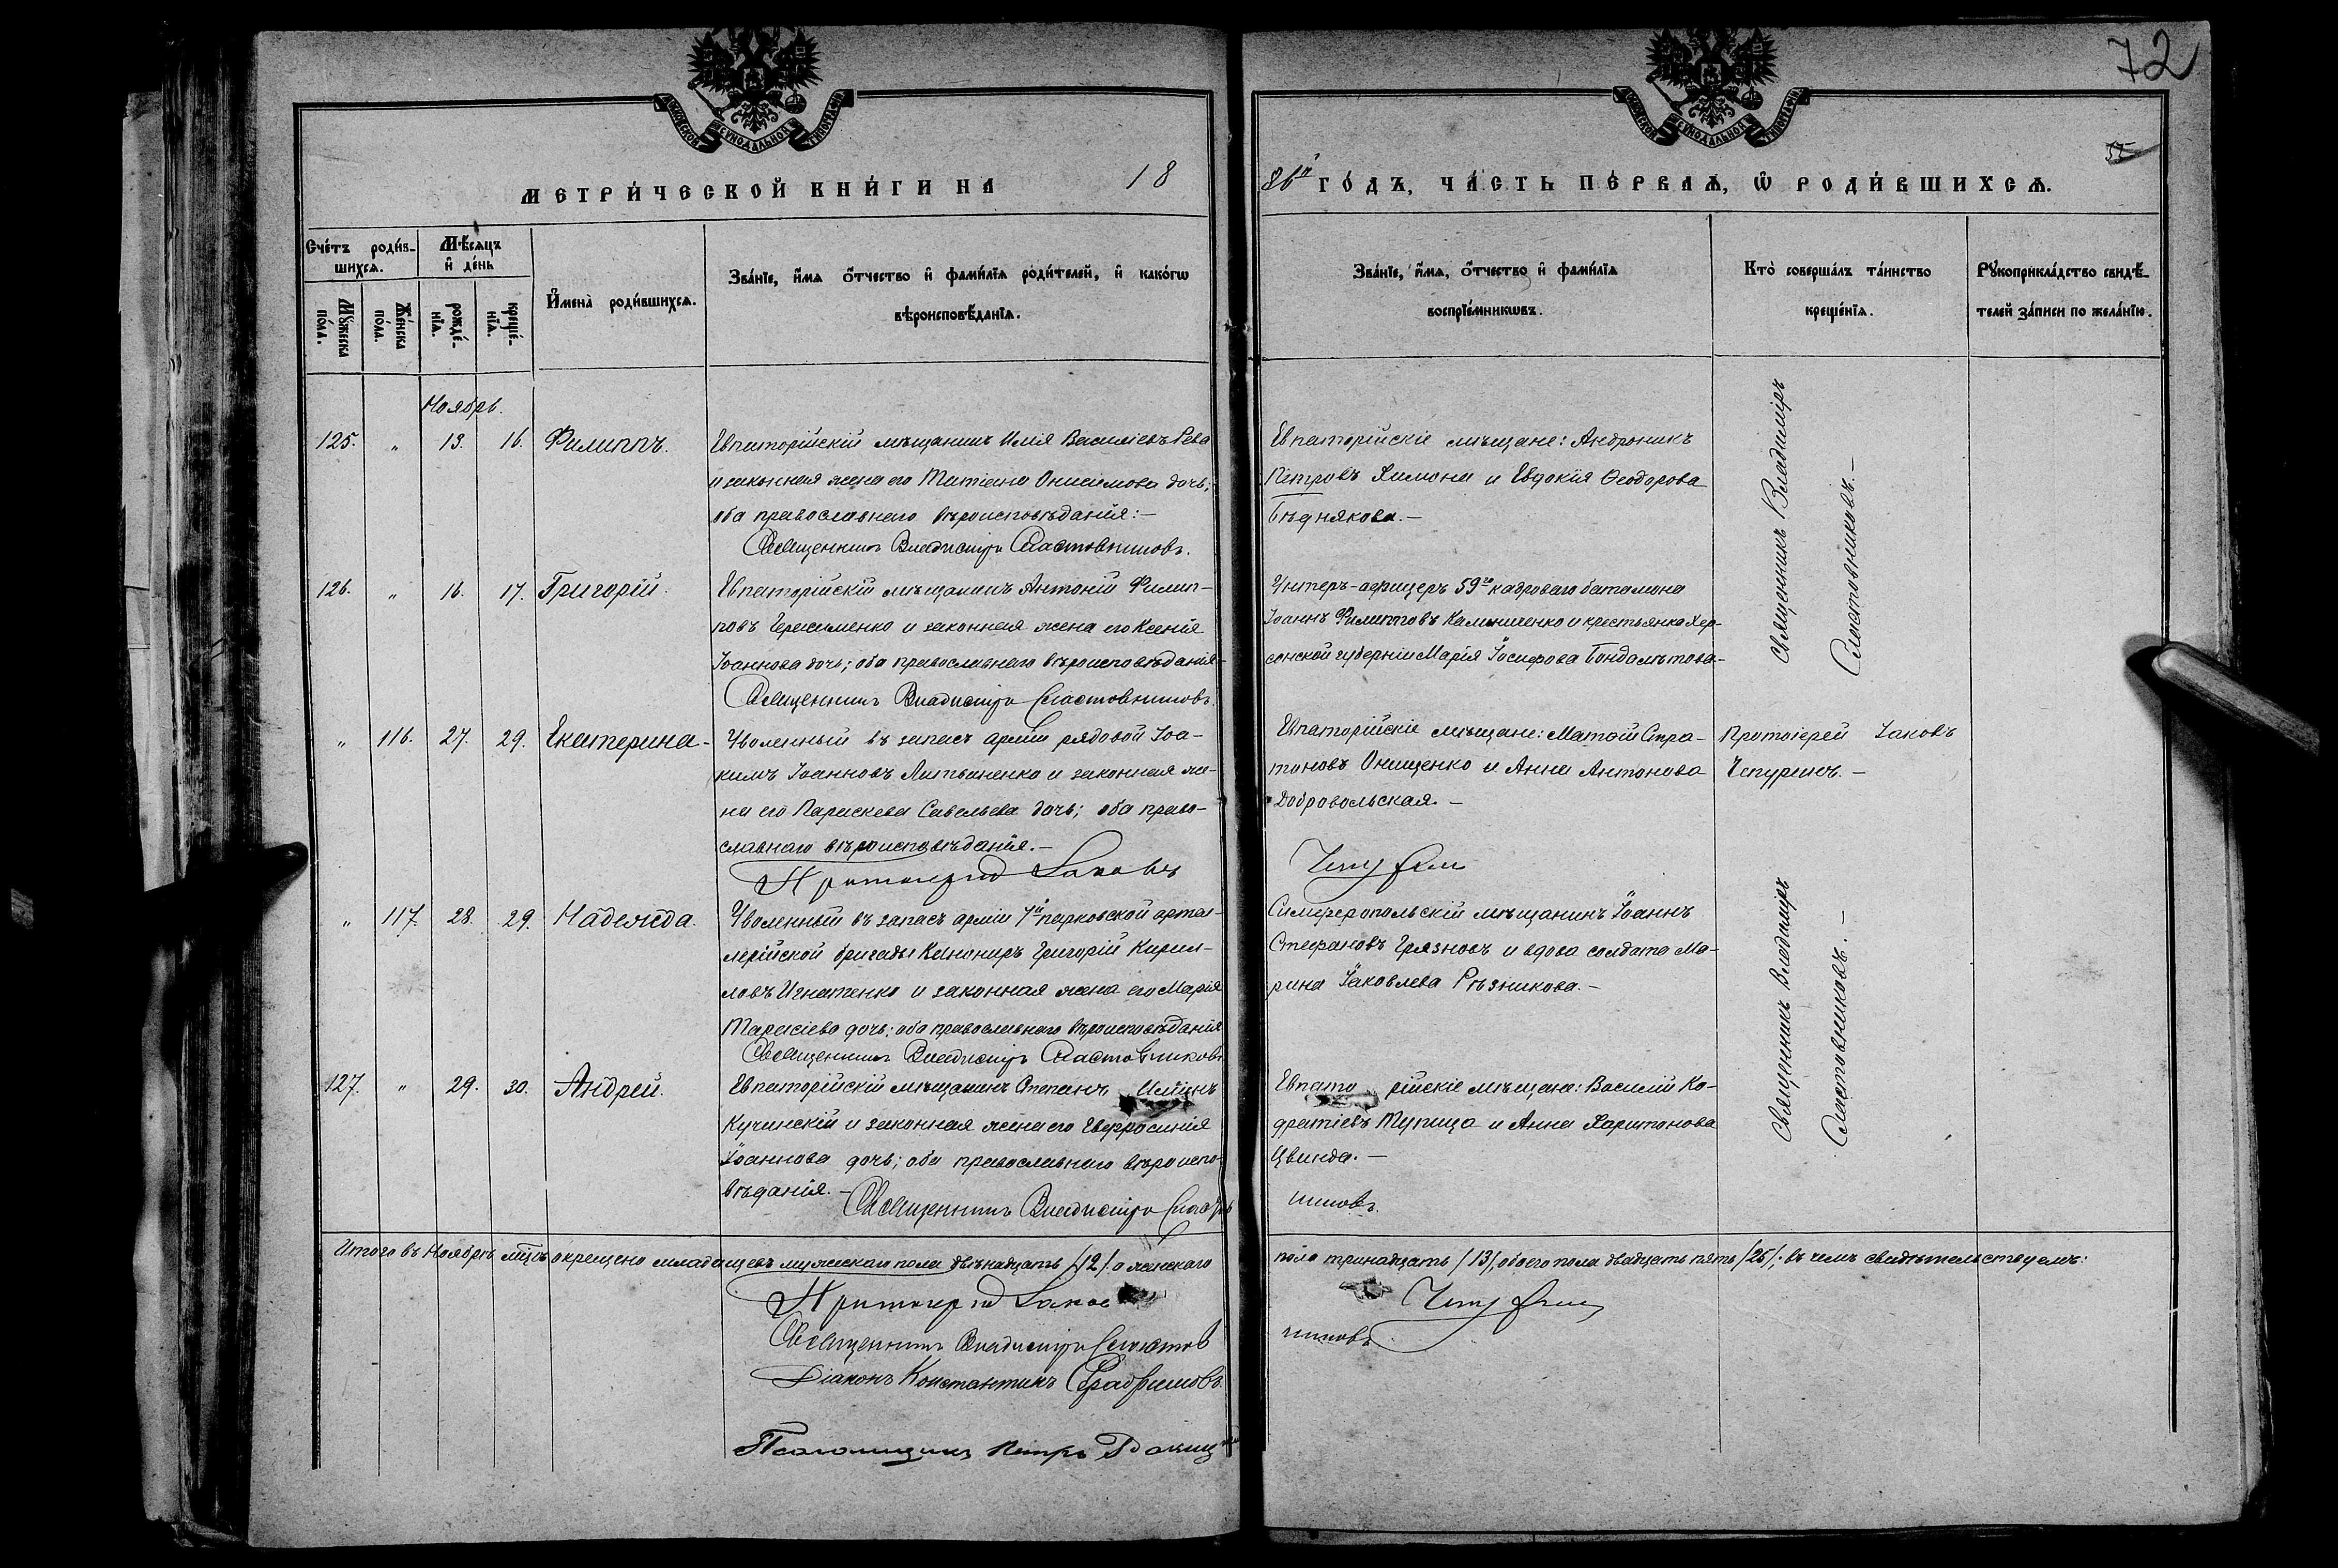 72
МОСКОВСКОЙ СѴНОДАЛЬНОЙ ТИПОГРАФІИ
МОСКОВСКОЙ СѴНОДАЛЬНОЙ ТИПОГРАФІИ
МЕТРИ́ЧЕСКОЙ КНИ́ГИ НА 18
86й ГО́ДЪ, ЧА́СТЬ ПЕ́РВАѦ, Ѡ҆ РОДИ́ВШИХСѦ.
Сче́тъ роди́в-
шихсѧ.
Мѣ́сѧцъ
и҆ де́нь
Мꙋ́жеска
по́ла.
Же́нска
по́ла.
рожде́-
нїѧ.
креще́-
нїѧ.
И҆мена̀ роди́вшихсѧ.
Зва́нїе, и҆́мѧ ѻ҆́тчество и҆ фами́лїѧ роди́телей, и҆ како́гѡ
вѣроисповѣ́данїѧ.
Зва́нїе, и҆́мѧ, ѻ҆́тчество и҆ фами́лїѧ
воспрїе́мникѡвъ.
Кто̀ соверша́лъ та́инство
креще́нїѧ.
Рꙋкоприкла́дство свидѣ́-
телей за́писи по жела́нїю.
Ноябрь.
125. " 13. 16. Филиппъ.
Евпаторійскій мѣщанинъ Илія Василіевъ Рева
и законная жена его Татіана Онисимова дочь;
оба православнаго вѣроисповѣданія:—
Священникъ Владиміръ Сластовниковъ.
Евпаторійскіе мѣщане: Андроникъ
Петровъ Химона и Евдокія Ѳеодорова
Бѣднякова.—
Священникъ Владиміръ
Сластовниковъ.—
126. " 16. 17. Григорій.
Евпаторійскій мѣщанинъ Антоній Филип-
повъ Герасименко и законная жена его Ксенія
Іоаннова дочь; оба православнаго вѣроисповѣданія-
Священникъ Владиміръ Сластовниковъ.
Унтеръ-офицеръ 59го кадроваго баталіона
Іоаннъ Филипповъ Калиниченко и крестьянка Хер-
сонской губерніи Марія Іосифова Бондалѣтова.-
" 116. 27. 29. Екатерина-
Уволенный въ запасъ арміи рядовой Іоа-
кимъ Іоанновъ Литвиненко и законная же-
на его Параскева Савельева дочь; оба право-
славнаго вѣроисповѣданія.—
Протоіерей Іаковъ
Евпаторійскіе мѣщане: Матѳій Стра-
тоновъ Онищенко и Анна Антонова
Добровольская.—
Чепуринъ
Протоіерей Іаковъ
Чепуринъ.—
" 117. 28. 29. Надежда.
Уволенный въ запасъ арміи 7й парковской артил-
лерійской бригады Канониръ Григорій Кирил-
ловъ Игнатенко и законная жена его Марія
Тарасіева дочь; оба православнаго вѣроисповѣданія
Священникъ Владиміръ Сластовниковъ
Симферопольскій мѣщанинъ Іоаннъ
Стефановъ Грязновъ и вдова солдата Ма-
рина Іаковлева Рѣзникова.—
Священникъ Владиміръ
Сластовниковъ.—
127. " 29. 30. Андрей.
Евпаторійскій мѣщанинъ Степанъ Иліинъ
Кучинскій и законная жена его Евфросинія
Іоаннова дочь; оба православнаго вѣроиспо-
вѣданія.—
Священникъ Владиміръ Сластов
никовъ.
Евпаторійскіе мѣщане: Василій Ко-
дратіевъ Тупица и Анна Харитонова
Цвинда.—
Итого въ Ноябрѣ мцѣ окрещено младенцевъ мужескаго пола двѣнадцать /12/. а женскаго
пола тринадцать /13/, обоего пола двадцать пять /25/; въ чемъ свидѣтельствуемъ:
Протоіерей Іаков Чепуринъ
Священникъ Владиміръ Сластов
никовъ
Діаконъ Константинъ
Псаломщикъ Петръ